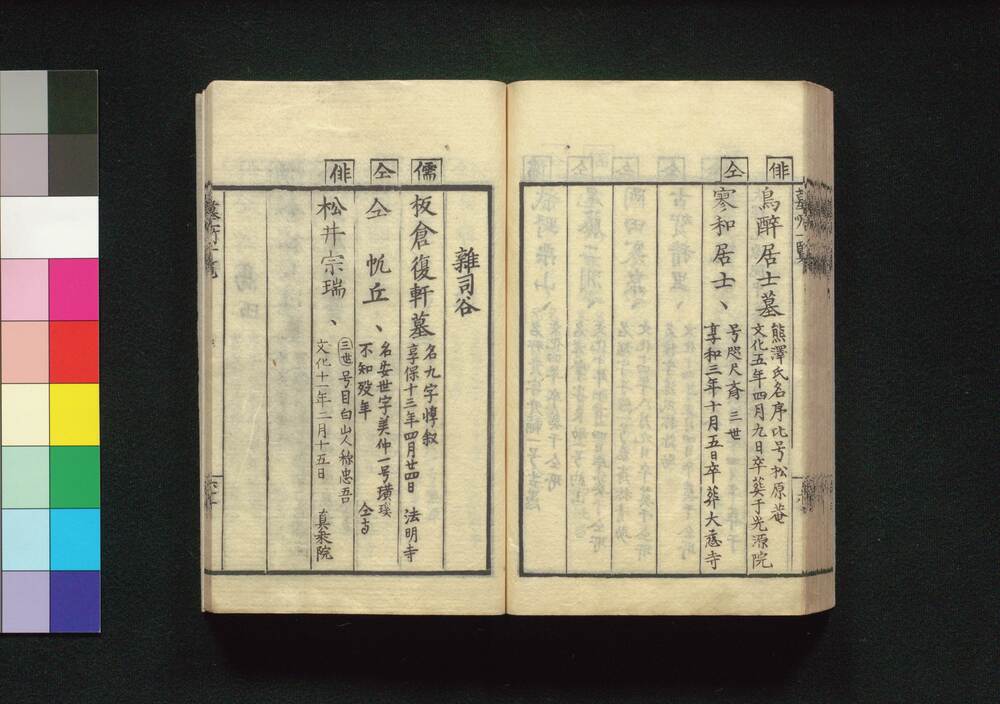 俳
鳥醉居士墓
熊澤氏名序比号松原菴
文化五年四月九日卒葬于光源院
仝
寥和居士、
号咫尺斎 三世
享和三年十月五日卒葬大慈寺
雜司谷
儒
板倉復軒墓
名九字惇叙
享保十三年四月廿四日 法明寺
仝
仝 帆丘、
名安世字美仲一号璜溪
不知歿年 仝寺
俳
松井宗瑞、
三世号目白山人称忠吾
文化十一年二月十五日 真乗院